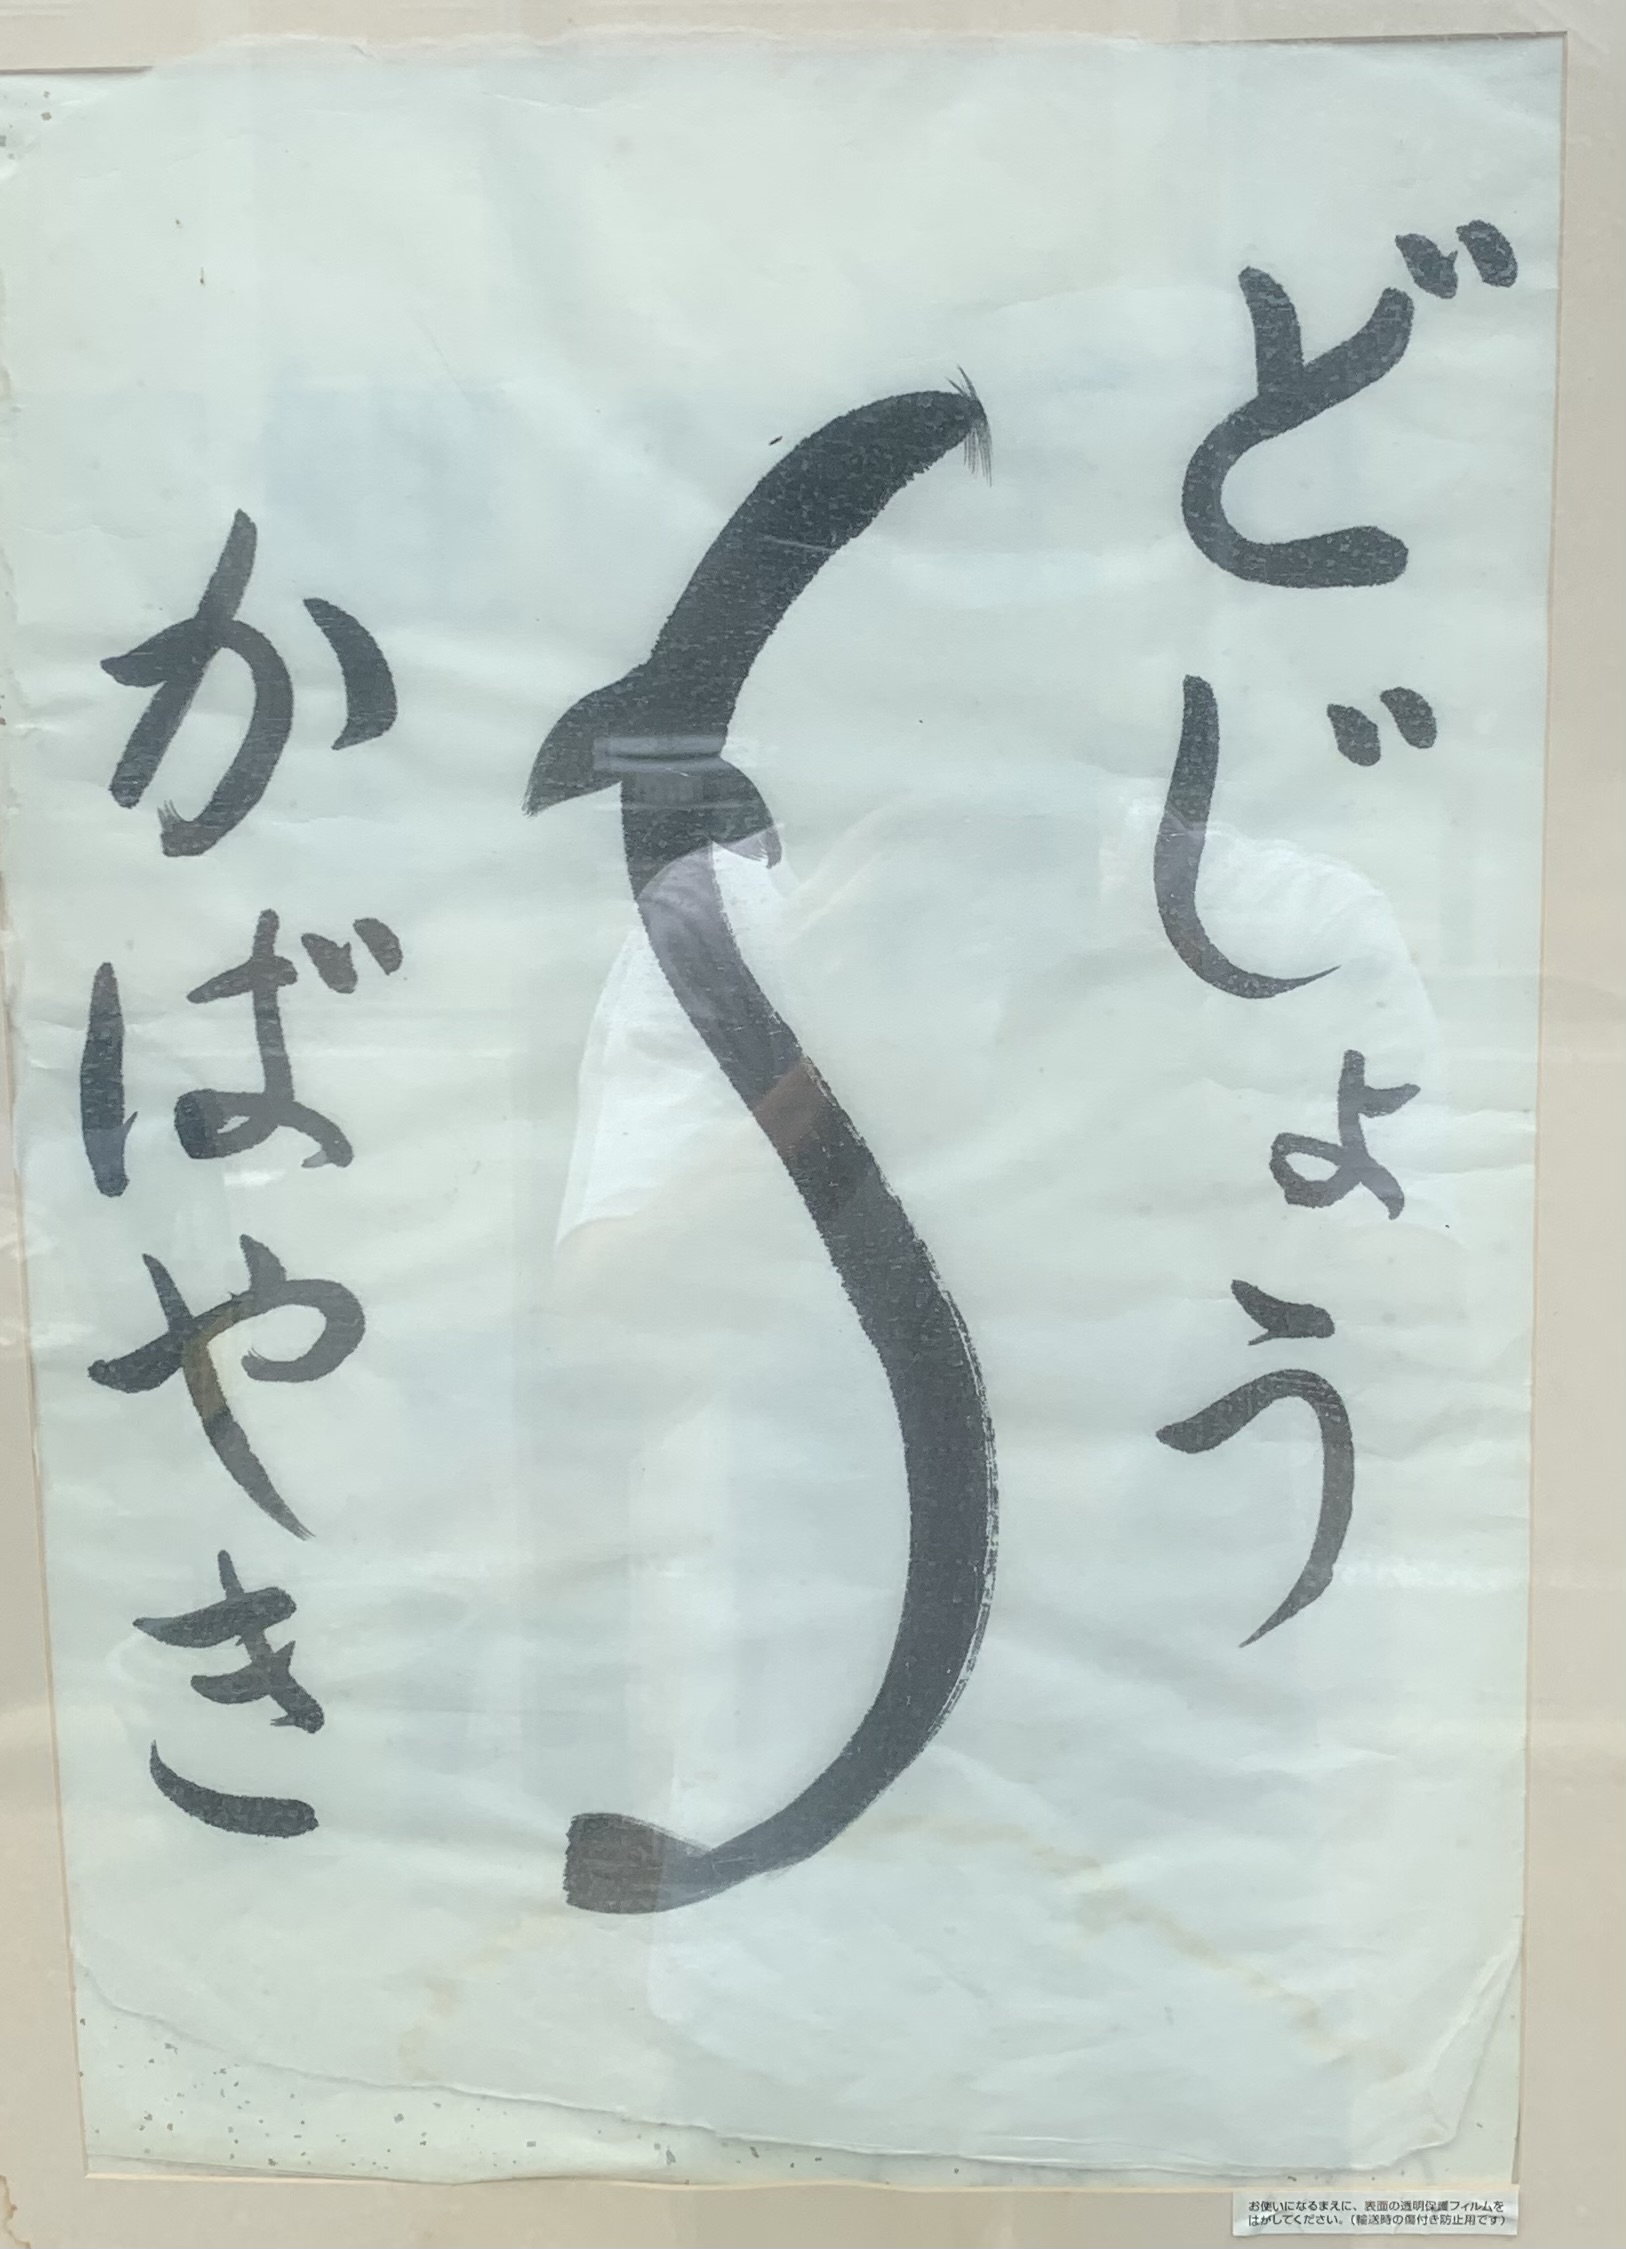 どじょう
かばやき
お使いになるまえに、表面の透明保護フィルムを
はがしてください。(輸送時の傷付き防止用です)